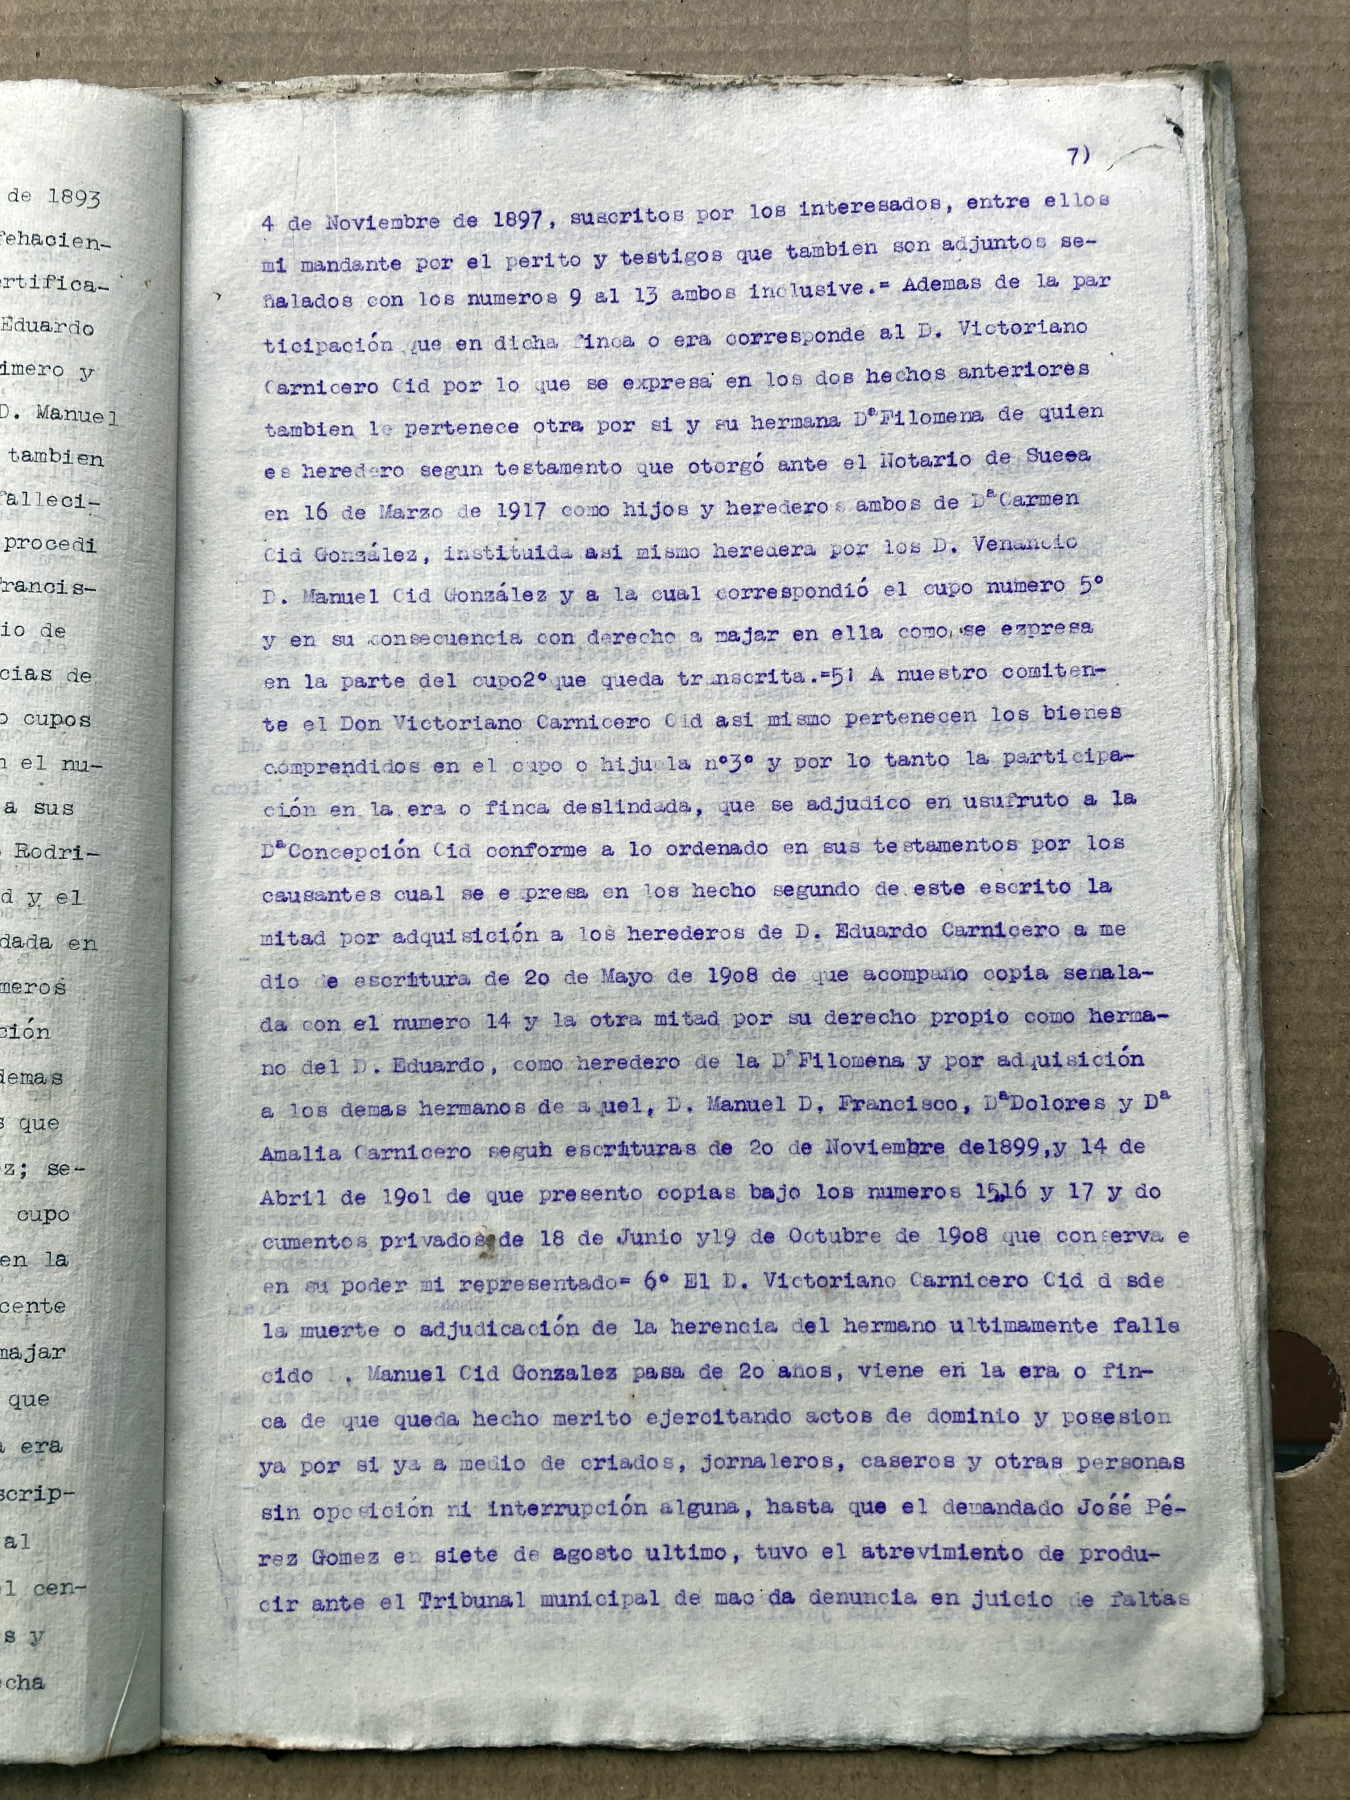 de 1893
fehacien-
ertifica-
Eduardo
imero y
D. Manuel
tambien
falleci-
procedi
rancis-
io de
cias de
o cupos
n el nu-
a sus
Rodri-
d y el
dada en
meros
ción
demas
s que
z; se-
cupo
en la
cente
majar
que
a era
scrip-
al
l cen-
s y
echa
7)
4 de Noviembre de 1897, suscritos por los interesados, entre ellos
mi mandante por el perito y testigos que tambien son adjuntos se-
ñalados con los numeros 9 al 13 ambos inclusive.= Ademas de la par
ticipación que en dicha finca o era corresponde al D. Victoriano
Carnicero Cid por lo que se expresa en los dos hechos anteriores
tambien le pertenece otra por si y su hermana DªFilomena de quien
es heredero segun testamento que otorgó ante el Notario de Sueea
en 16 de Marzo de 1917 como hijos y herederos ambos de DªCarmen
Cid González, instituida asi mismo heredera por los D. Venancio
D. Manuel Cid González y a la cual correspondió el cupo numero 5º
y en su consecuencia con derecho a majar en ella como, se ezpresa
en la parte del cupo2ºque queda transcrita.=5! A nuestro comiten-
te el Don Victoriano Carnicero Cid asi mismo pertenecen los bienes
comprendidos en el cupo o hijuela nº3º y por lo tanto la participa-
ción en la era o finca deslindada, que se adjudico en usufruto a la
DªConcepción Cid conforme a lo ordenado en sus testamentos por los
causantes cual se e presa en los hecho segundo de este escrito la
mitad por adquisición a los herederos de D. Eduardo Carnicero a me
dio de escritura de 2o de Mayo de 19o8 de que acompaño copia señala-
da con el numero 14 y la otra mitad por su derecho propio como herma-
no del D. Eduardo, como heredero de la DªFilomena y por adquisición
a los demas hermanos de aquel, D. Manuel D. Francisco, DªDolores y Dª
Amalia Carnicero segun escrituras de 2o de Noviembre de1899,y 14 de
Abril de 19o1 de que presento copias bajo los numeros 15,16 y 17 y do
cumentos privados de 18 de Junio y19 de Octubre de 19o8 que conserva e
en su poder mi representado= 6º El D. Victoriano Carnicero Cid d sde
la muerte o adjudicación de la herencia del hermano ultimamente falle
cido D. Manuel Cid Gonzalez pasa de 2o años, viene en la era o fin-
ca de que queda hecho merito ejercitando actos de dominio y posesion
ya por si ya a medio de criados, jornaleros, caseros y otras personas
sin oposición ni interrupción alguna, hasta que el demandado José Pé-
rez Gomez en siete de agosto ultimo, tuvo el atrevimiento de produ-
cir ante el Tribunal municipal de mac da denuncia en juicio de faltas